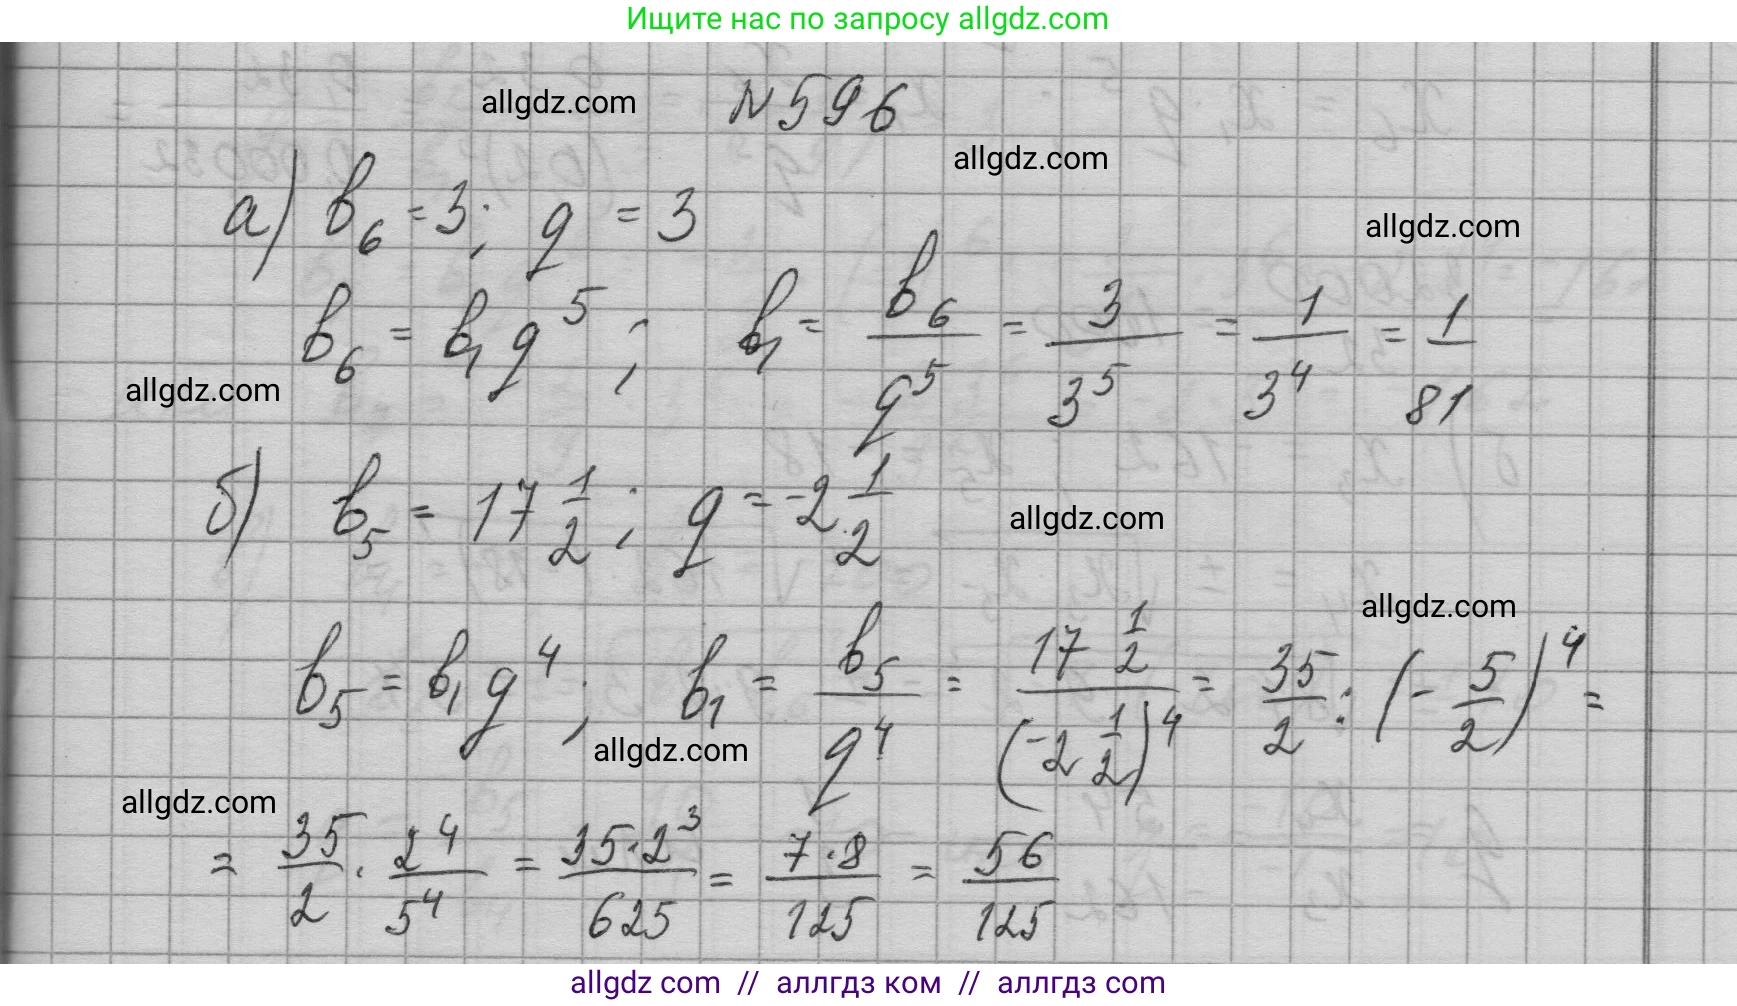 Ищите нас по запросу allgdz.com
allgdz.com №596
allgdz.com
а) b₆ = 3; q = 3
allgdz.com
b₆ = b₁q⁵; b₁ = b₆/q⁵ = 3/3⁵ = 1/3⁴ = 1/81
allgdz.com
б) b₅ = 17 1/2; q = -2 1/2
allgdz.com
allgdz.com
b₅ = b₁q⁴; b₁ = b₅/q⁴ = 17 1/2/(-2 1/2)⁴ = 35/2 : (-5/2)⁴ =
allgdz.com
allgdz.com
= 35/2 · 2⁴/5⁴ = 35·2³/625 = 7·8/125 = 56/125
allgdz.com // аллгдз ком // аллгдз com